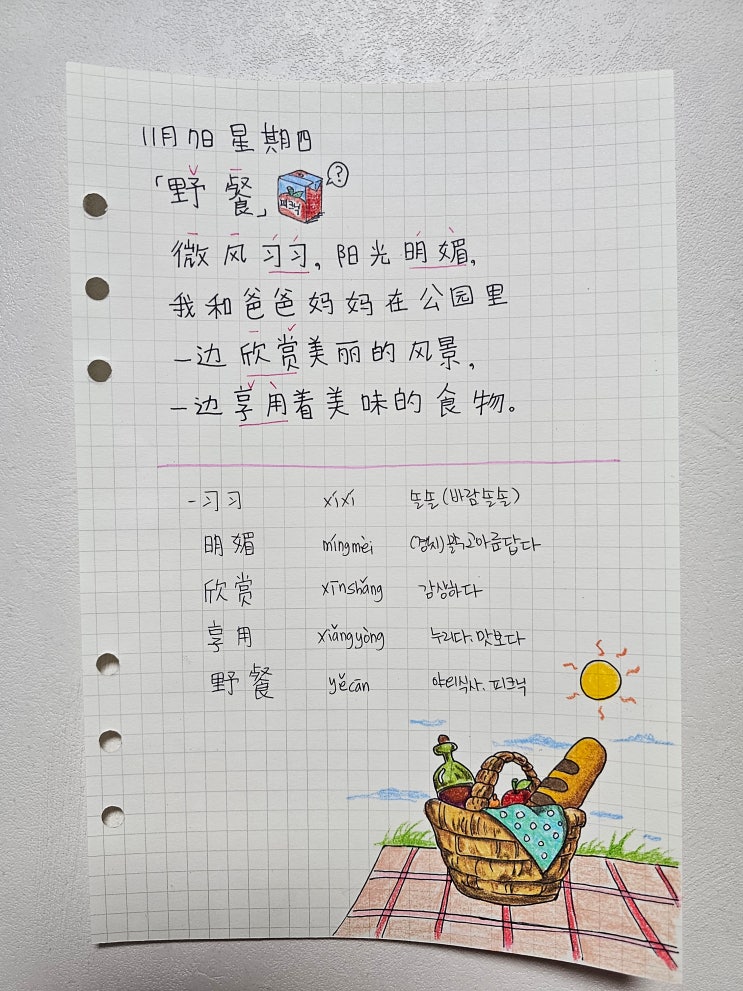 11月7日 星期四
「野餐」 피크닉 ?
微风习习, 阳光明媚,
我和爸爸妈妈在公园里
一边欣赏美丽的风景,
一边享用着美味的食物。
- 习习 xíxí 솔솔 (바람솔솔)
明媚 míngmèi (경치)밝고아름답다
欣赏 xīnshǎng 감상하다
享用 xiǎngyòng 누리다. 맛보다
野餐 yěcān 야외식사. 피크닉